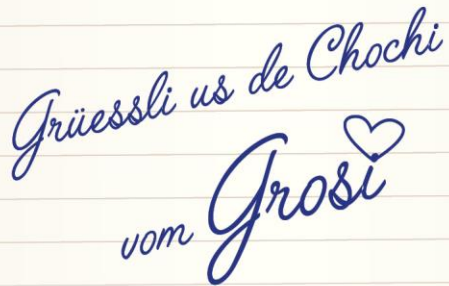 Grüessli us de Chochi
vom Grosi